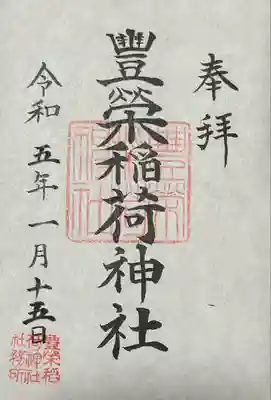 奉拝
豐榮稲荷神社
令和五年一月十五日
豐榮稲荷神社
豐榮稲荷神社社務所